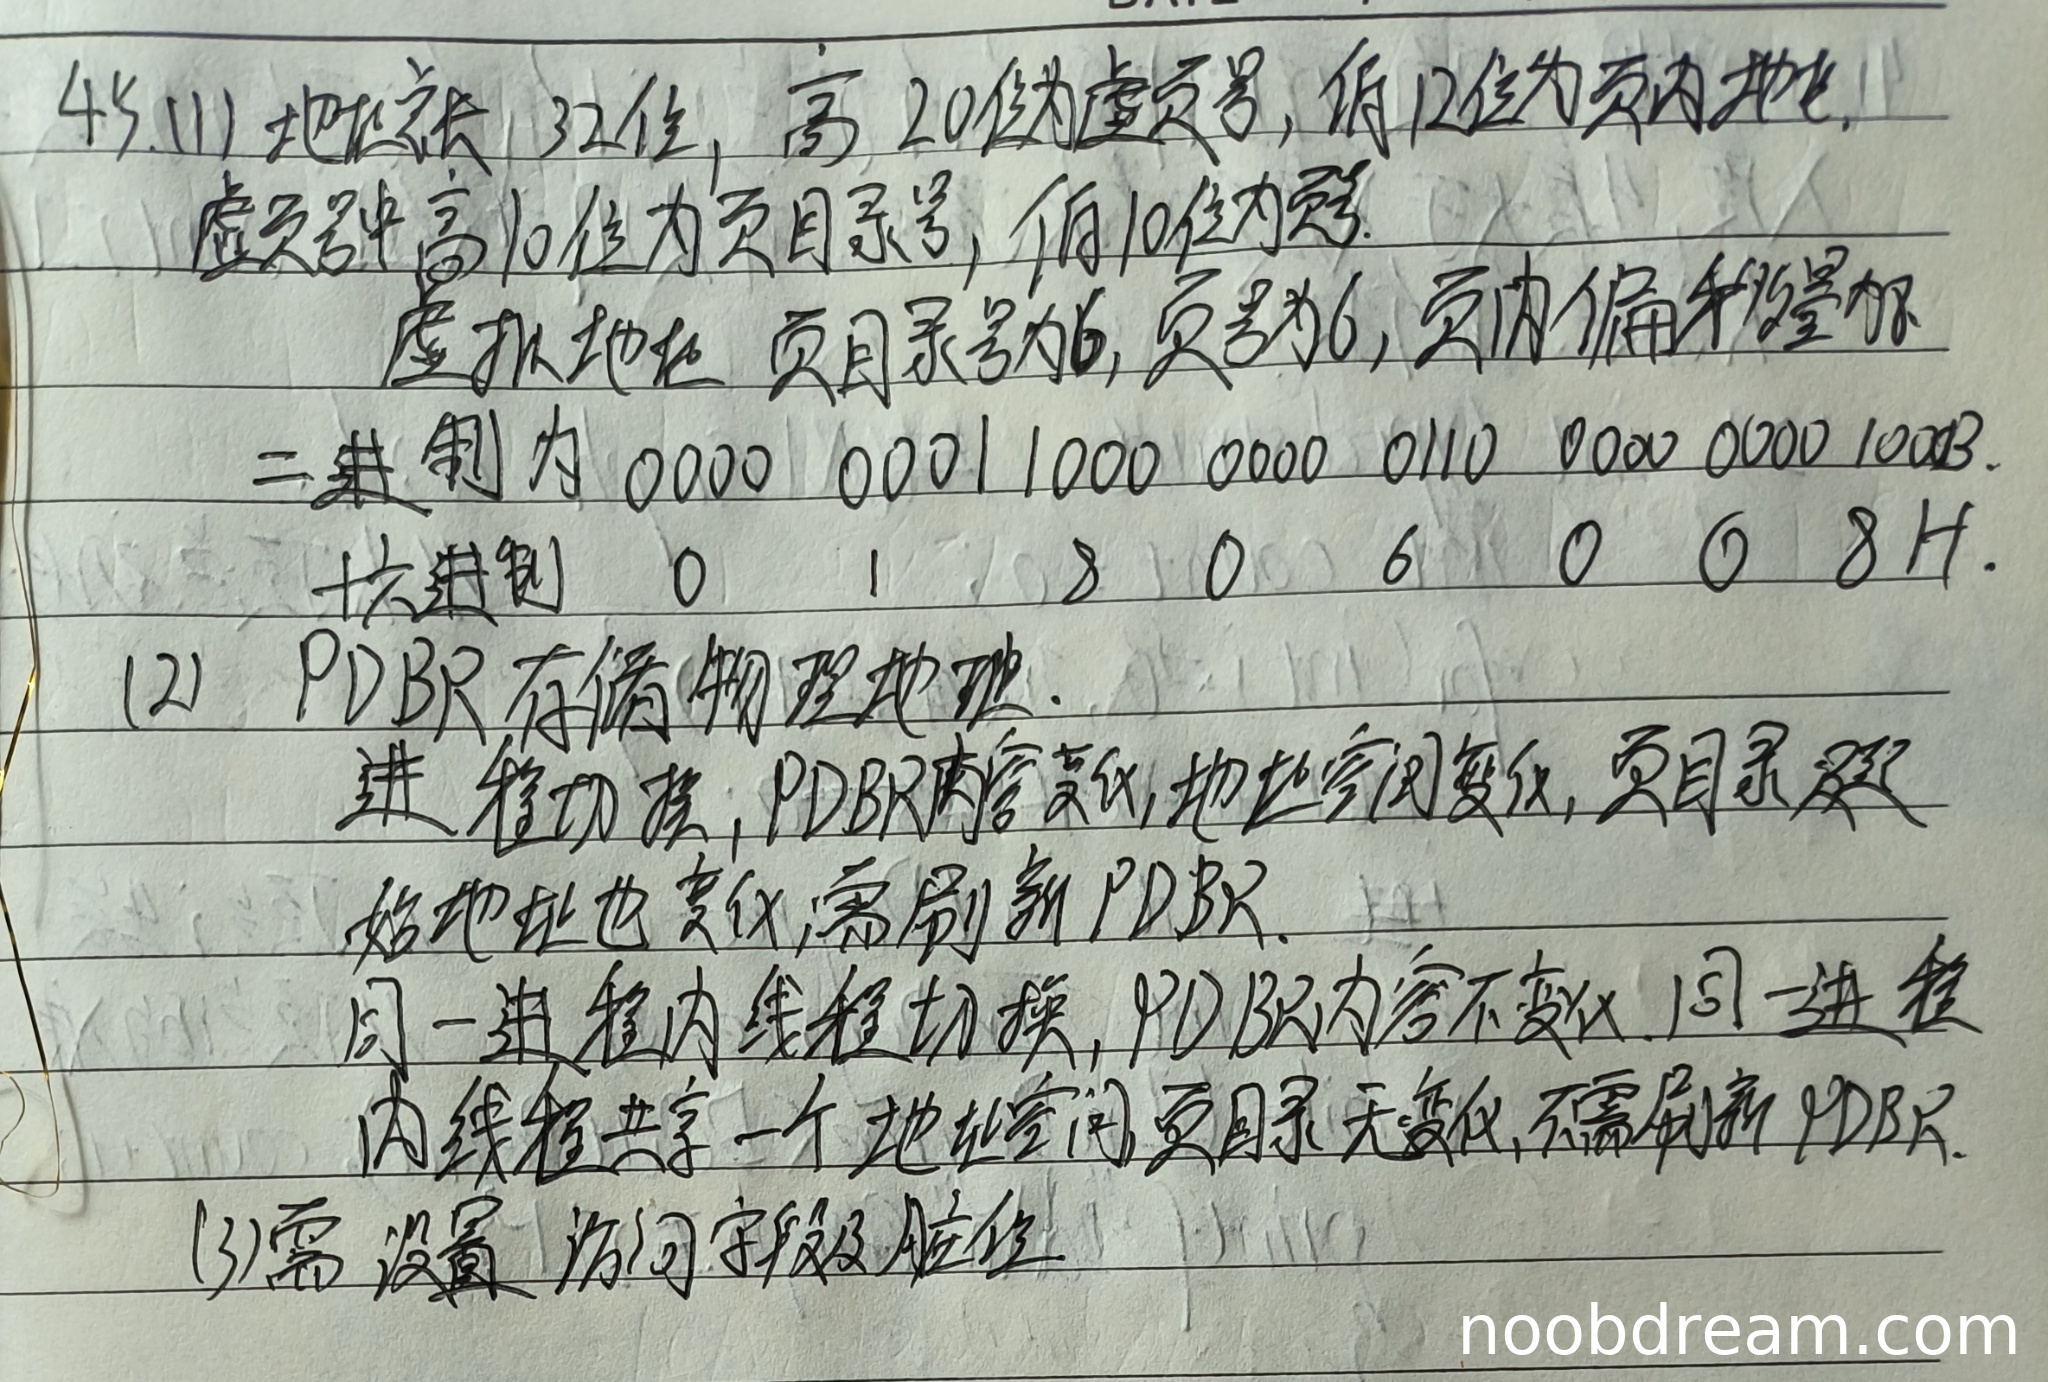 45.(1) 地址字长 32位, 高 20位为虚页号, 低12位为页内地址.
虚页号中高10位为页目录号, 低10位为页号.
虚拟地址 页目录号为6, 页号为6, 页内偏移量为8
二进制为 0000 0001 1000 0000 0110 0000 0000 1000B.
十六进制 0 1 8 0 6 0 0 8 H.
(2) PDBR存储物理地址.
进程切换, PDBR内容变化, 地址空间变化, 页目录起
始地址也变化, 需刷新 PDBR.
同一进程内线程切换, PDBR内容不变化. 同一进程
内线程共享一个地址空间, 页目录无变化, 不需刷新 PDBR.
(3)需 设置 访问字段及脏位.
noobdream.com